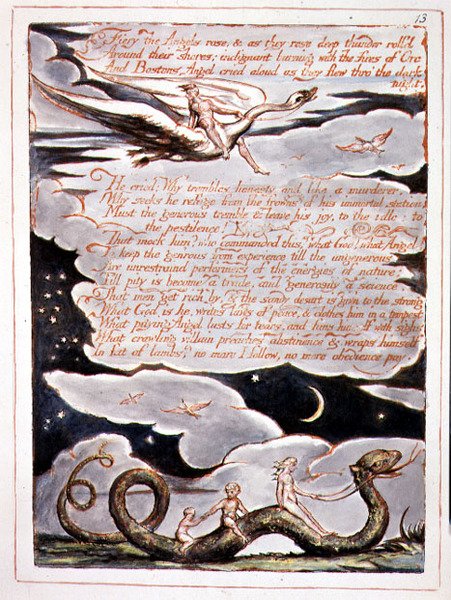 13
Fiery the Angels rose, & as they rose deep thunder roll'd
Around their shores: indignant burning with the fires of Orc
And Bostons Angel cried aloud as they flew thro' the dark
night.
He cried: Why trembles honesty and like a murderer,
Why seeks he refuge from the frowns of his immortal station!
Must the generous tremble & leave his joy, to the idle: to
the pestilence!
That mock him? who commanded this? what God? what Angel!
To keep the gen'rous from experience till the ungenerous
Are unrestraind performers of the energies of nature;
Till pity is become a trade, and generosity a science,
That men get rich by, & the sandy desart is giv'n to the strong
What God is he, writes laws of peace, & clothes him in a tempest
What pitying Angel lusts for tears, and fans himself with sighs
What crawling villain preaches abstinence & wraps himself
In fat of lambs? no more I follow, no more obedience pay.